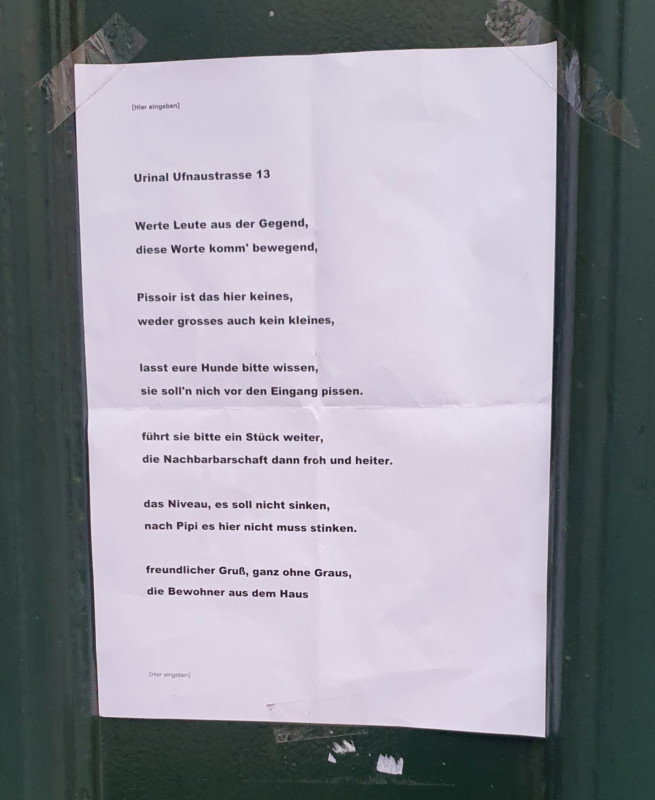 [Hier eingeben]
Urinal Ufnaustrasse 13
Werte Leute aus der Gegend,
diese Worte komm' bewegend,
Pissoir ist das hier keines,
weder grosses auch kein kleines,
lasst eure Hunde bitte wissen,
sie soll'n nich vor den Eingang pissen.
führt sie bitte ein Stück weiter,
die Nachbarbarschaft dann froh und heiter.
das Niveau, es soll nicht sinken,
nach Pipi es hier nicht muss stinken.
freundlicher Gruß, ganz ohne Graus,
die Bewohner aus dem Haus
[Hier eingeben]